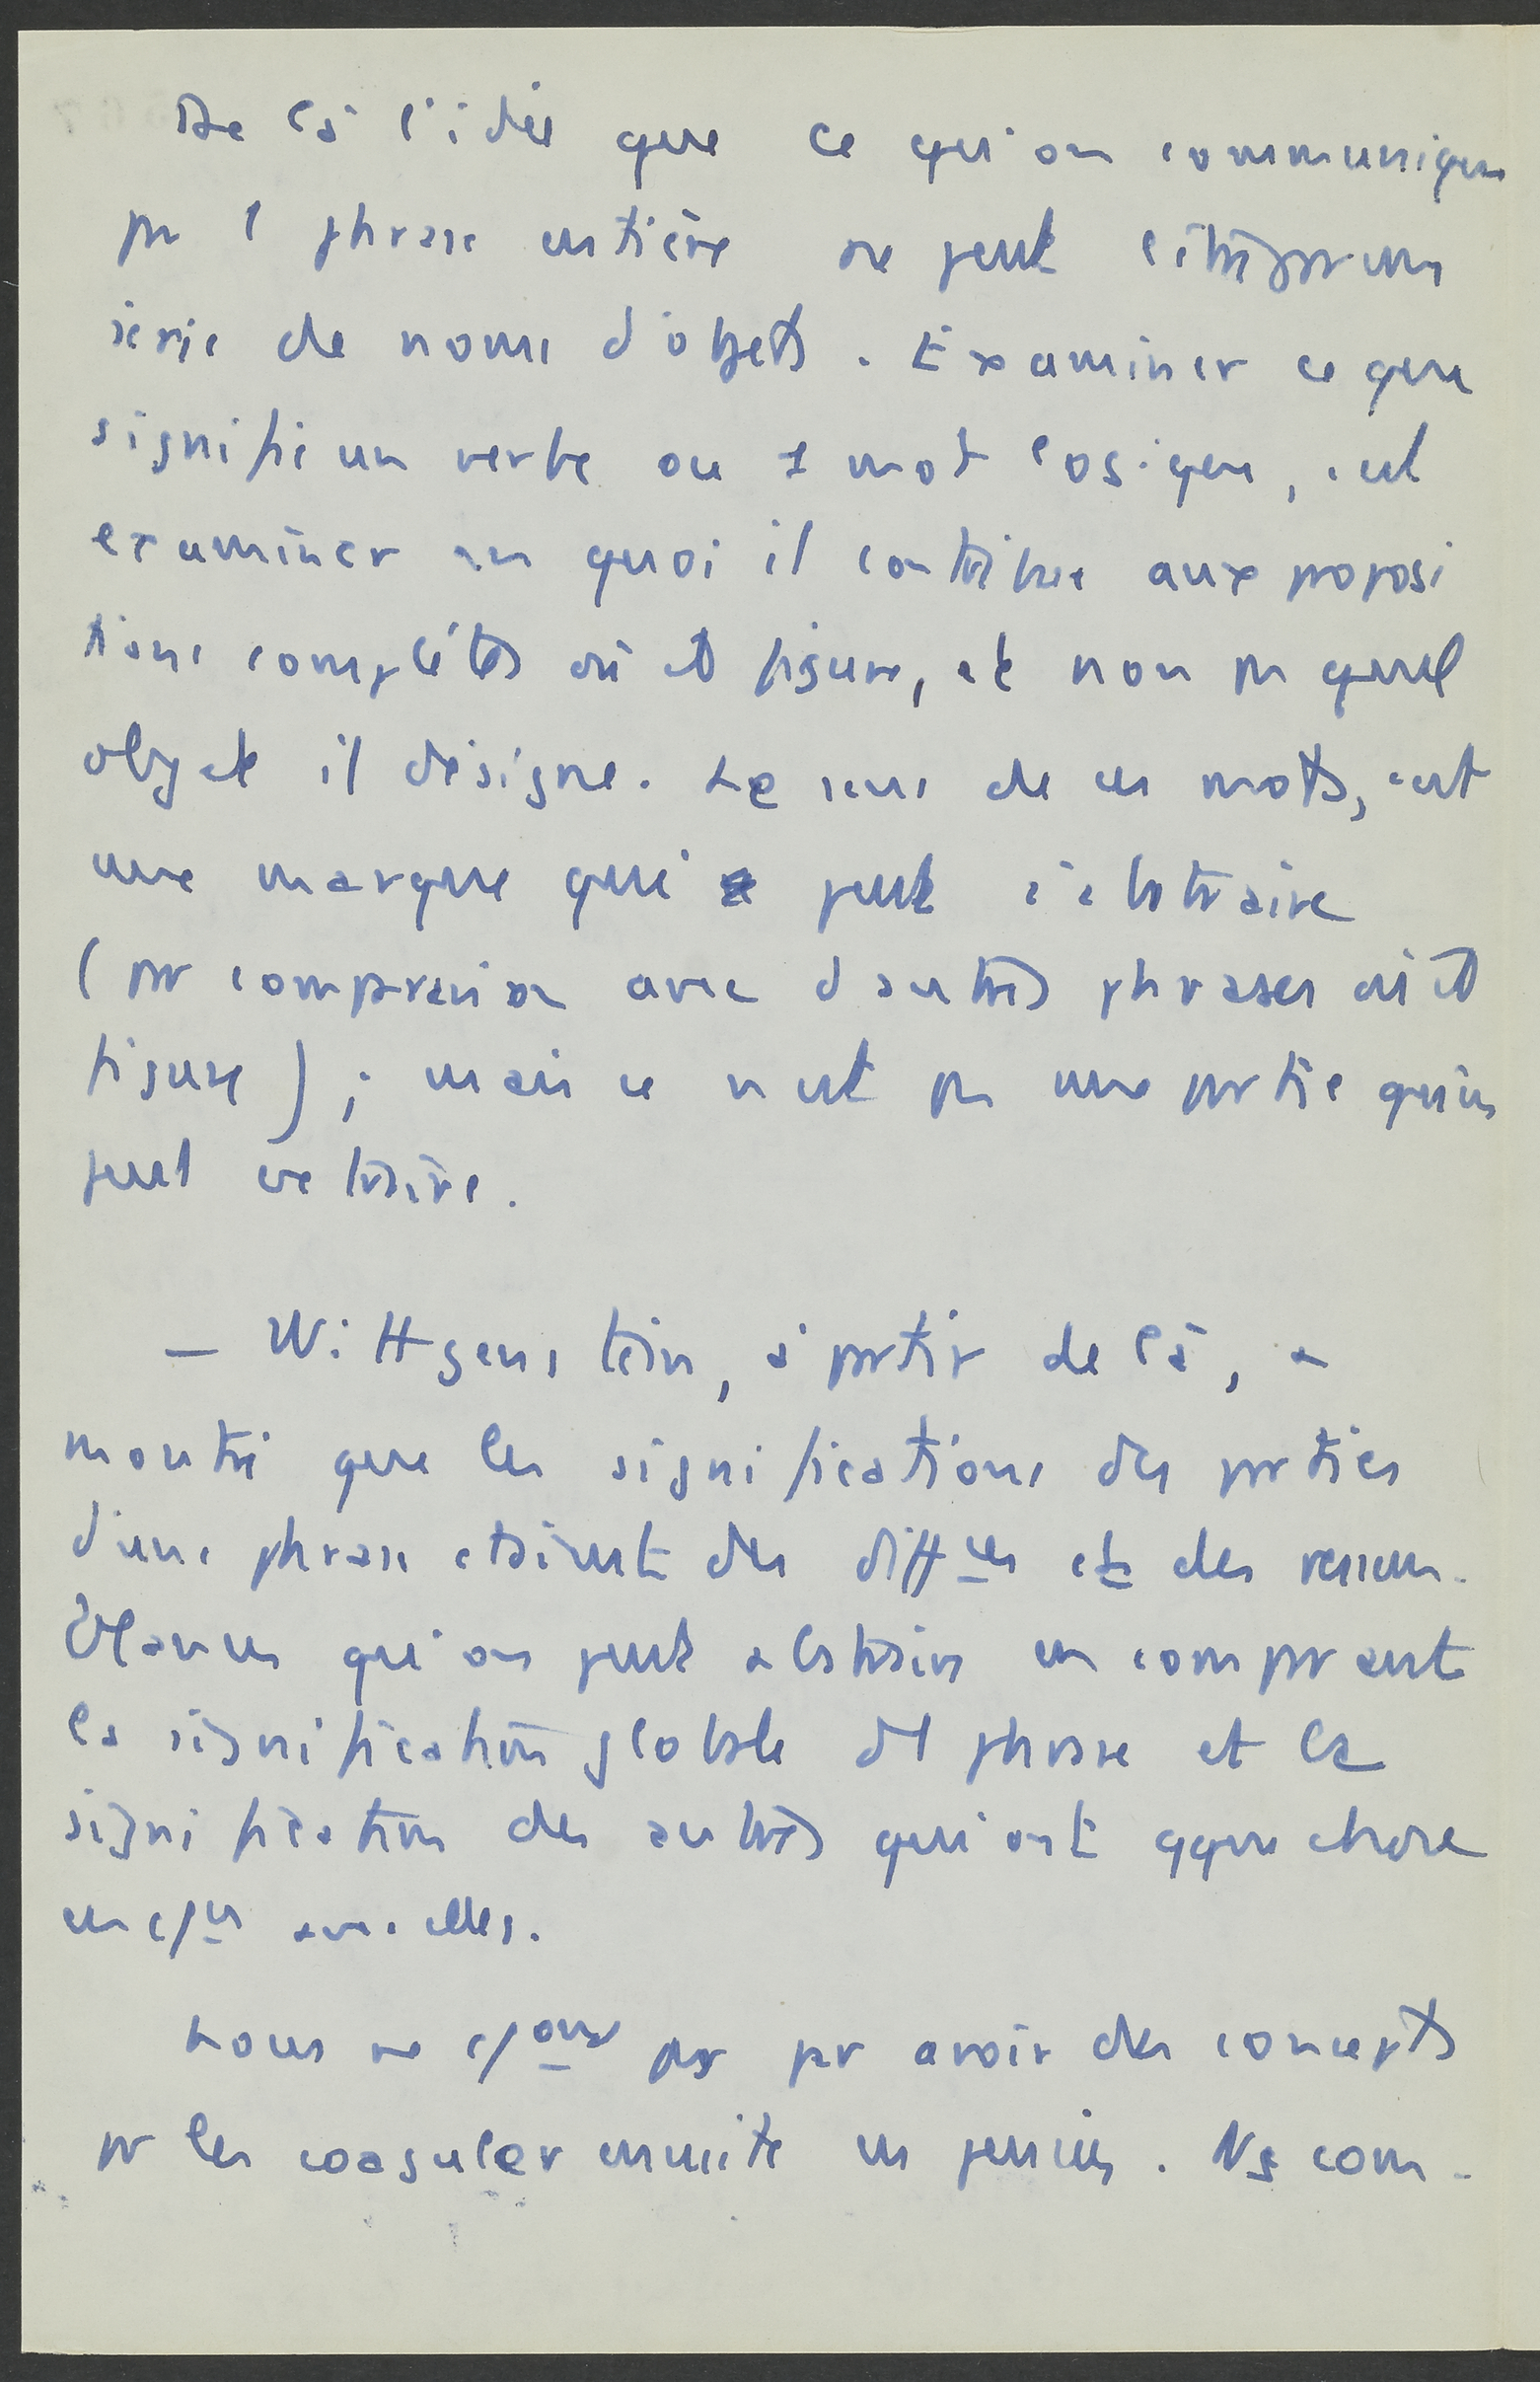 De là l'idée que ce qu'on communique
par 1 phrase entière ne peut l'être par une
série de noms d'objets. Examiner ce que
signifie un verbe ou 1 mot logique, c'est
examiner en quoi il contribue aux proposi
tions complètes où il figure, et non pas quel
objet il désigne. Le sens de ces mots, c'est
une marque qui peut s'abstraire
(par comparaison avec d'autres phrases où il
figure) ; mais ce n'est pas une partie qu'on
peut extraire.
— Wittgenstein, à partir de là, a
montré que les significations des parties
d'une phrase étaient des diffces et des ressem-
blances qu'on peut abstraire en comparant
la signification globale d l phrase et la
signification des autres qui ont qque chose
en c/un avec elles.
Nous ne c/ons pas par avoir des concepts
pr les coaguler ensuite en pensées. Ns com-